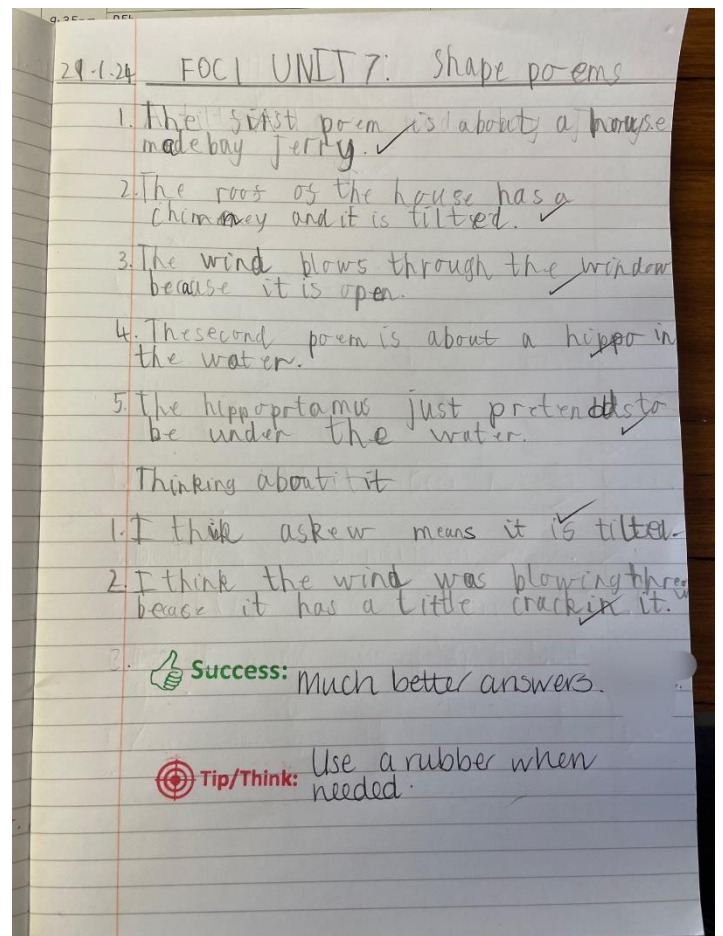 29.1.24 FOCI UNIT 7: Shape poems
1. The first poem is about a house
made bay jerry.
2. The roof of the house has a
chimney and it is tilted.
3. The wind blows through the window
because it is open.
4. The second poem is about a hippo in
the water.
5. The hippoprtamus just pretends to
be under the water.
Thinking about it
1. I think askew means it is tilted.
2. I think the wind was blowing threw
becase it has a little crack in it.
3.
Success: Much better answers.
Tip/Think: Use a rubber when
needed.